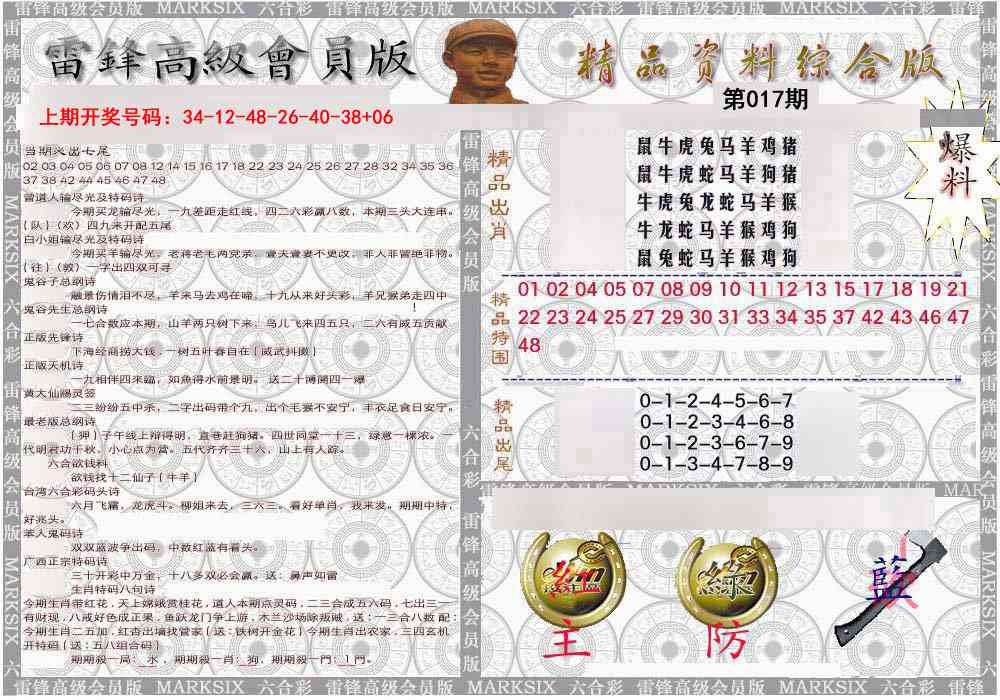 雷锋高级会员版 MARKSIX 六合彩 雷锋高级会员版 MARKSIX 六合彩 雷锋高级会员版 MARKSIX 六合彩 雷锋
雷鋒高級會員版
精品资料综合版
第017期
上期开奖号码：34-12-48-26-40-38+06
爆料
当期火出七尾
02 03 04 05 06 07 08 12 14 15 16 17 18 22 23 24 25 26 27 28 32 34 35 36
37 38 42 44 45 46 47 48
曾道人输尽光及特码诗
今期买龙输尽光，一九差距走红线，四二六彩赢八数，本期三头大连串。
{队}（欢）四九来开配五尾
白小姐输尽光及特码诗
今期买羊输尽光，老蒋老毛两党亲，壹夫壹妻不更改，非人非冒绝非物。
{往}（敦）一字出四双可寻
鬼谷子总纲诗
融景伤情泪不尽，羊来马去鸡在啼，十九从来好头彩，羊兄猴弟走四中
鬼谷先生总纲诗
一七合数应本期，山羊两只树下来，鸟儿飞来四五只，二六有威五贡献
正版先锋诗
下海经商捞大钱，一树五叶春自在{威武抖擞}
正版天机诗
一九相伴四来臨，如魚得水前景明。送二十博開四一爆
黄大仙赐灵签
二三纷纷五中杀，二字出码带个九，出个毛猴不安宁，丰衣足食日安宁。
最老版总纲诗
{狎}子午线上辩得明，直巷赶狗猪。四世同堂一十三，绿意一棵浓。一
代明君功千秋，小心点为當。五代齐齐三十六，山上有人踪。
六合欲钱料
欲钱找十二仙子{牛羊}
台湾六合彩码头诗
六月飞霜，龙虎斗。柳姐来去，三六三。看好单肖，我来发。期期中特，
好兆头。
本人鬼码诗
双双蓝波争出码，中数红蓝有看头。
广西正宗特码诗
三十开彩中万金，十八多双必会赢。送：鼻声如雷
生肖特码八句诗
今期生肖带红花，天上嫦娥赏桂花，道人本期点灵码，二三合成五六码，七出三一
有财现，八戒好色成正果，鱼跃龙门争上游，木兰沙场除叛贼，送：一三合八数 配：
今期生肖二五加，红杏出墙找管家{送：铁树开金花}今期生肖出农家，三四玄机
开特码{送：五八组合码}
期期殺一局：水，期期殺一肖：狗，期期殺一門：1門。
精品出肖
鼠牛虎兔马羊鸡猪
鼠牛虎蛇马羊狗猪
牛虎兔龙蛇马羊猴
牛龙蛇马羊猴鸡狗
鼠兔蛇马羊猴鸡狗
精品特围
01 02 04 05 07 08 09 10 11 12 13 15 17 18 19 21
22 23 24 25 27 29 30 31 33 34 35 37 42 43 46 47
48
精品出尾
0-1-2-4-5-6-7
0-1-2-3-4-6-8
0-1-2-3-6-7-9
0-1-3-4-7-8-9
紅
主
綠
防
藍
雷锋高级会员版 MARKSIX 六合彩 雷锋高级会员版 MARKSIX 六合彩 雷锋高级会员版 MARKSIX 六合彩 雷锋